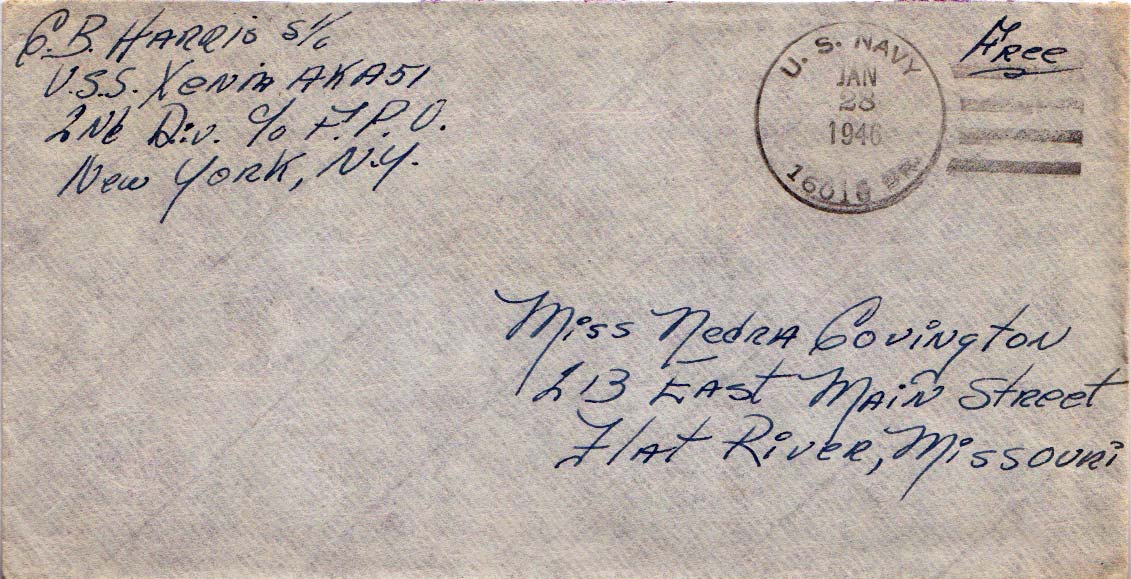 C.B. Harris S1/c
U.S.S. Xenia AKA51
2nd Div. c/o F.P.O.
New York, N.Y.
U.S. NAVY
JAN
28
1946
16016 BR.
Free
Miss Nedra Covington
213 East Main Street
Flat River, Missouri